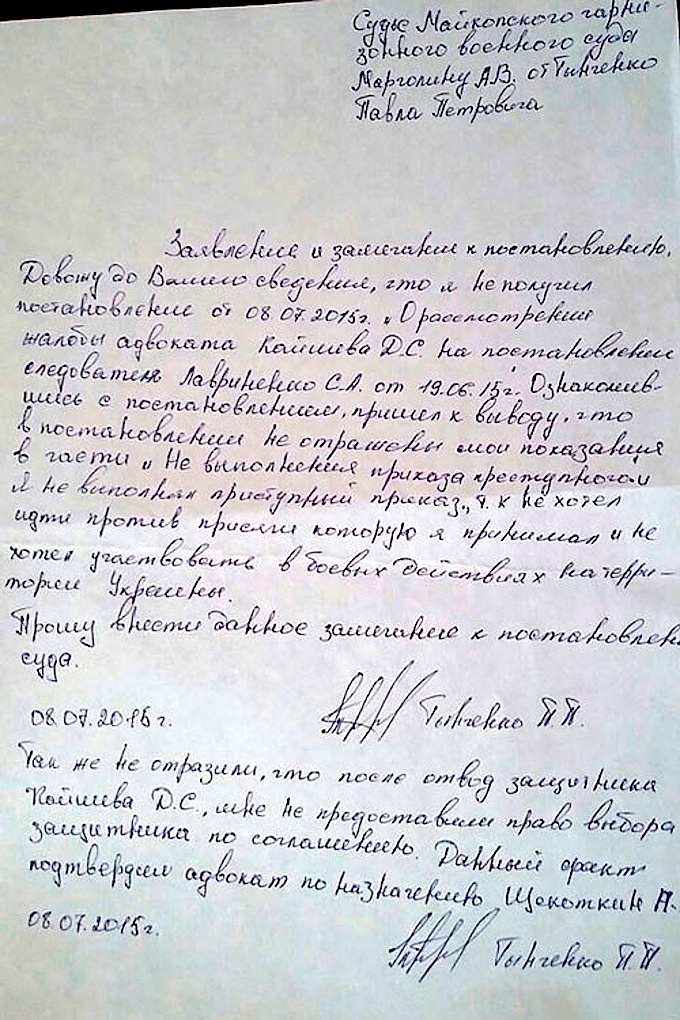 Судье Майкопского гарни-
зонного военного суда
Марголину А.В. от Тынченко
Павла Петровича
Заявление и замечание к постановлению.
Довожу до Вашего сведения, что я не получил
постановление от 08.07.2015г. „О рассмотрении
жалобы адвоката Кайшева Д.С. на постановление
следователя Лавриненко С.А. от 19.06.15г. Ознакомив-
шись с постановлением, пришел к выводу, что
в постановлении не отражены мои показания
в части „Не выполнения приказа преступного"
Я не выполнял приступный приказ, т.к не хотел
идти против присяги которую я принимал и не
хотел участвовать в боевых действиях на терри-
тории Украины.
Прошу внести данное замечание к постановлен
суда.
08.07.2015г. Тынченко П.П.
Так же не отразили, что после отвод защитника
Кайшева Д.С., мне не предоставили право выбора
защитника по соглашению. Данный факт
подтвердил адвокат по назначению Щекоткин А.
08.07.2015г. Тынченко П.П.